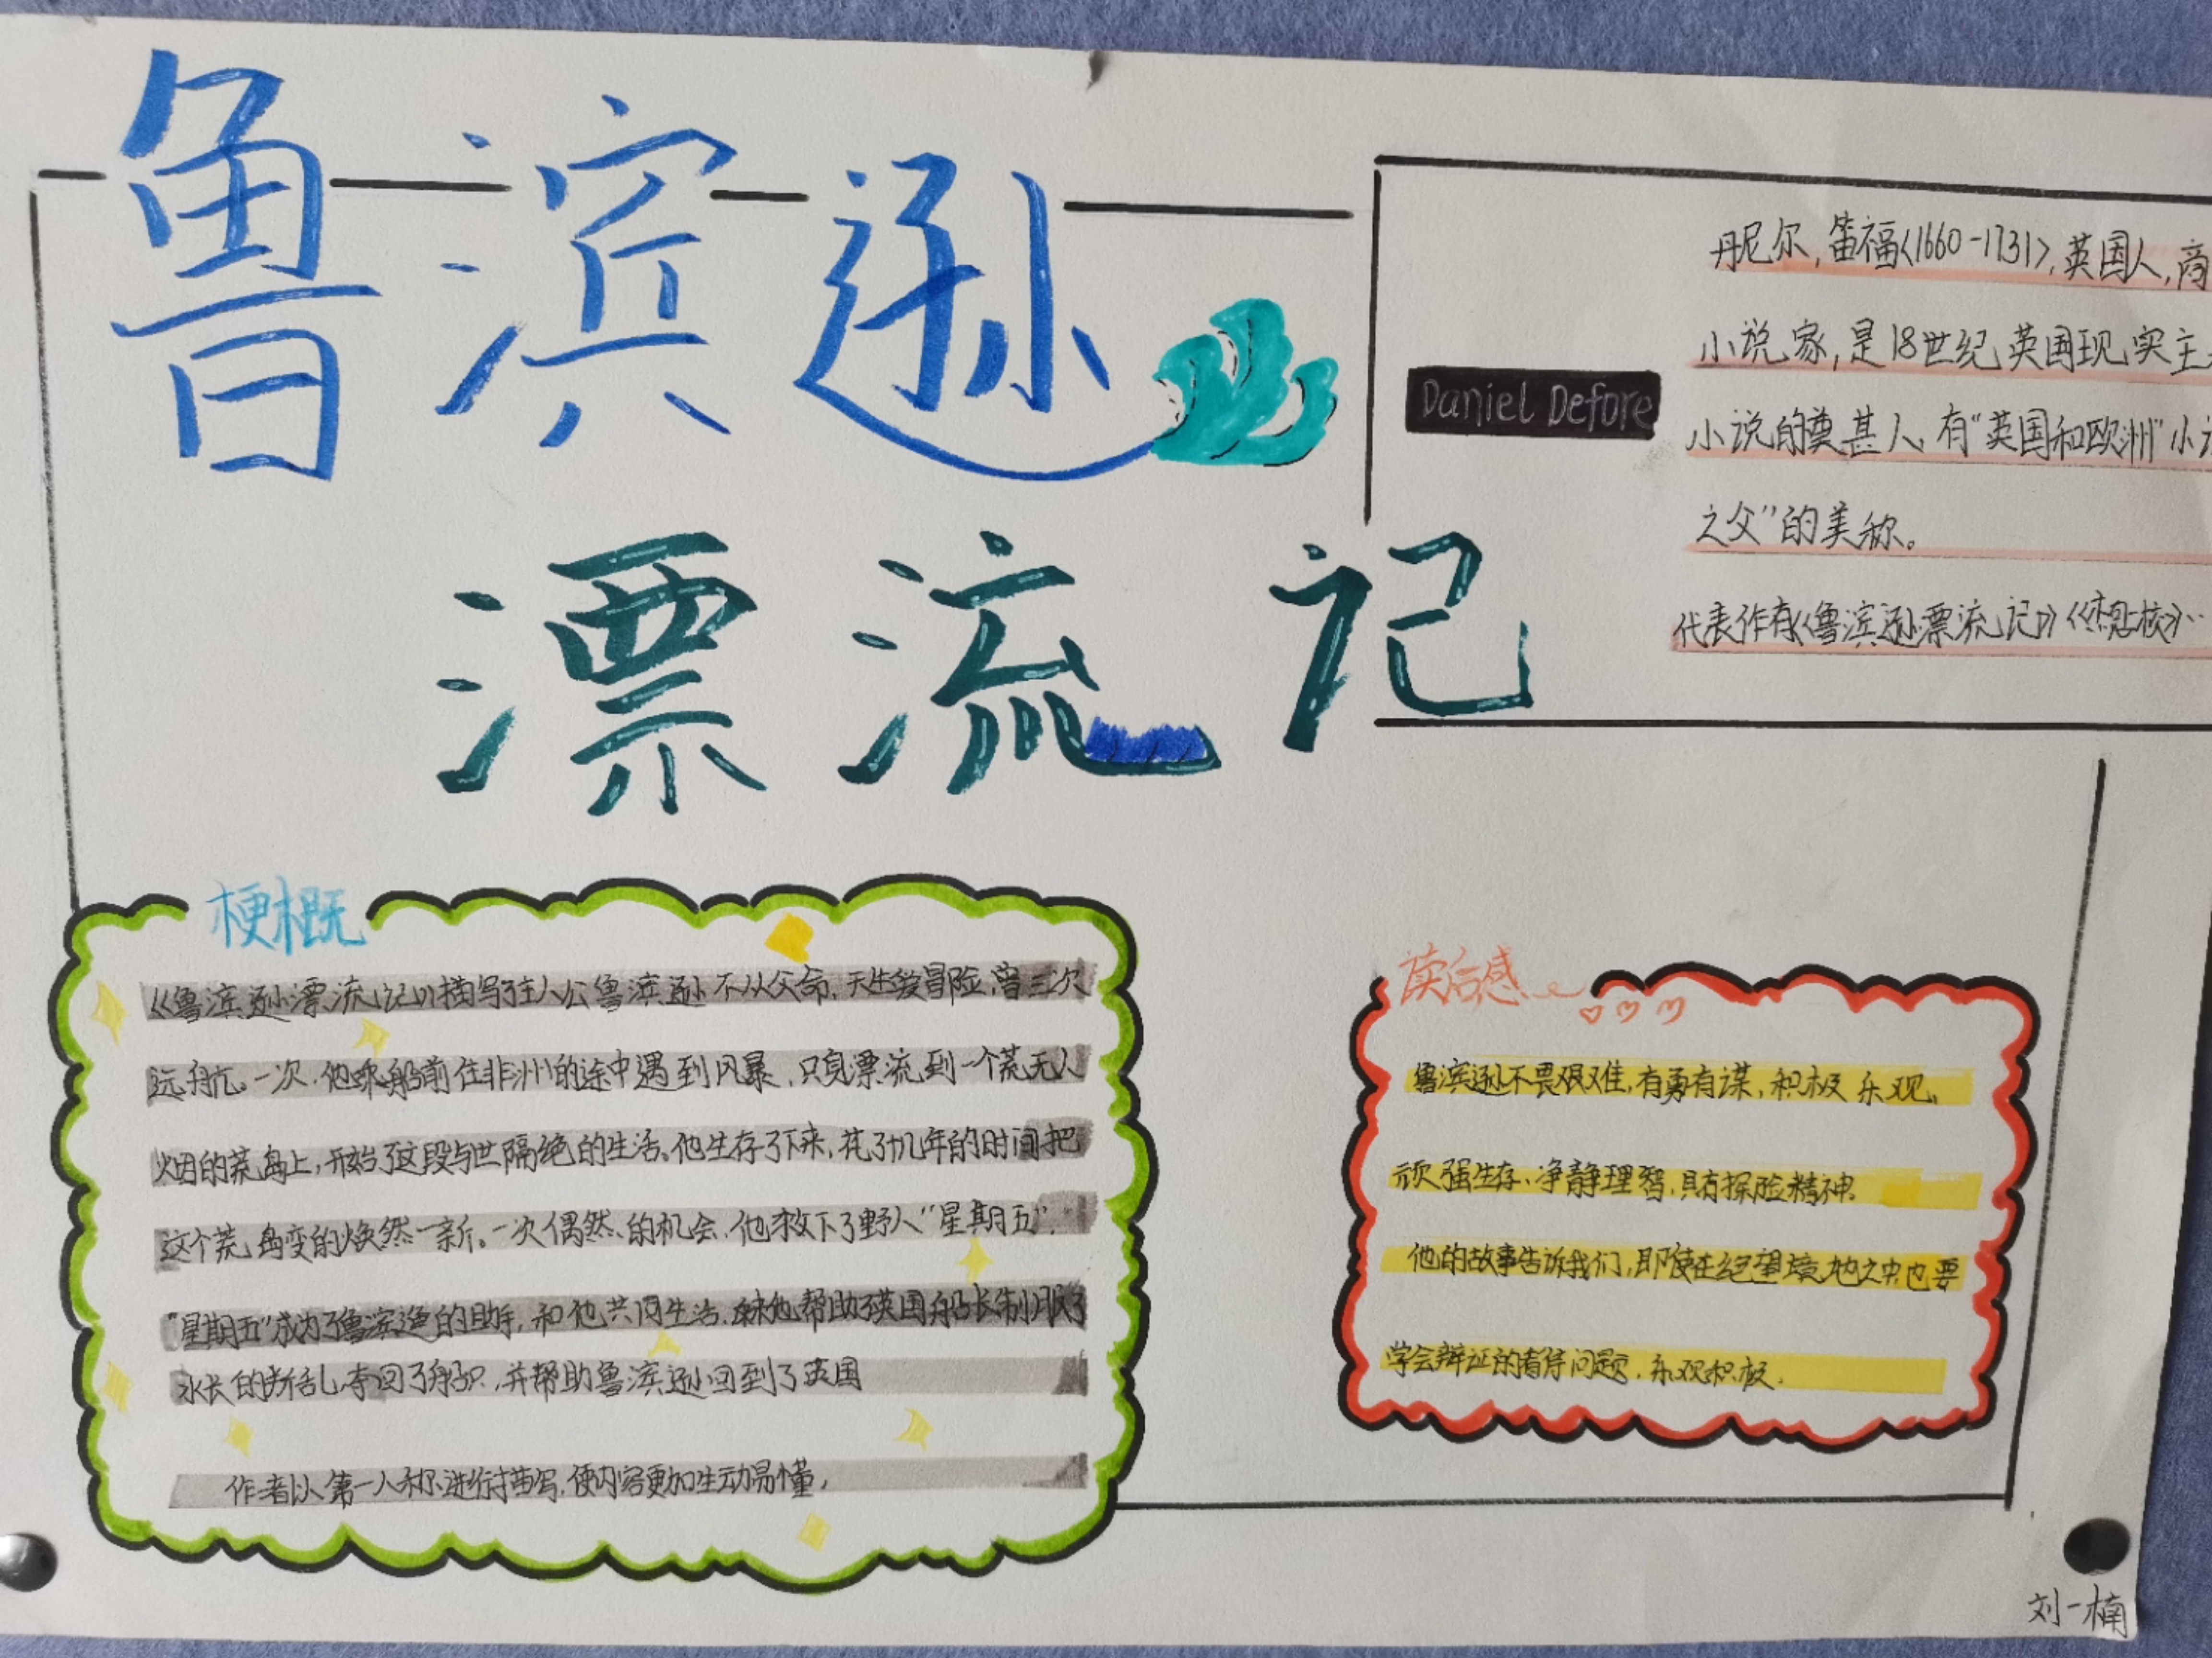 鲁滨逊
漂流记
丹尼尔,笛福<1660-1731>,英国人,商
小说家,是18世纪英国现实主
Daniel Defore
小说的奠甚人,有“英国和欧洲”小
之父”的美称。
代表作有《鲁滨逊漂流记》
梗概
《鲁滨逊漂流记》描写主人公鲁滨逊不从父命,天生爱冒险,曾三次
远航。一次,他乘船前往非洲的途中遇到风暴,只身漂流到一个荒无人
烟的荒岛上,开始了这段与世隔绝的生活。他生存了下来,花了几年的时间把
这个荒岛变的焕然一新。一次偶然的机会,他救下了野人“星期五”.
“星期五”成为了鲁滨逊的助手,和他共同生活,他帮助了英国船长制服了
水长的叛乱,夺回了船只,并帮助鲁滨逊回到了英国
作者以第一人称进行描写,使内容更加生动易懂,
读后感
鲁滨逊不畏艰难,有勇有谋,积极乐观、
顽强生存、净静理智,具有探险精神.
他的故事告诉我们,即使在绝望境地之中也要
学会辩证的看待问题,乐观积极.
刘一楠